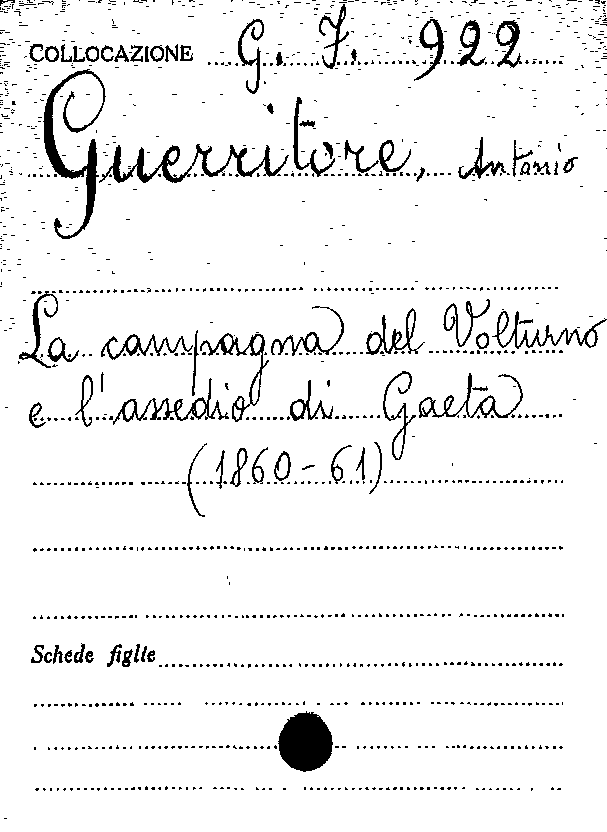 COLLOCAZIONE G. F. 922
Guerritore, Antonio
La campagna del Volturno
e l'assedio di Gaeta
(1860-61)
Schede figlie